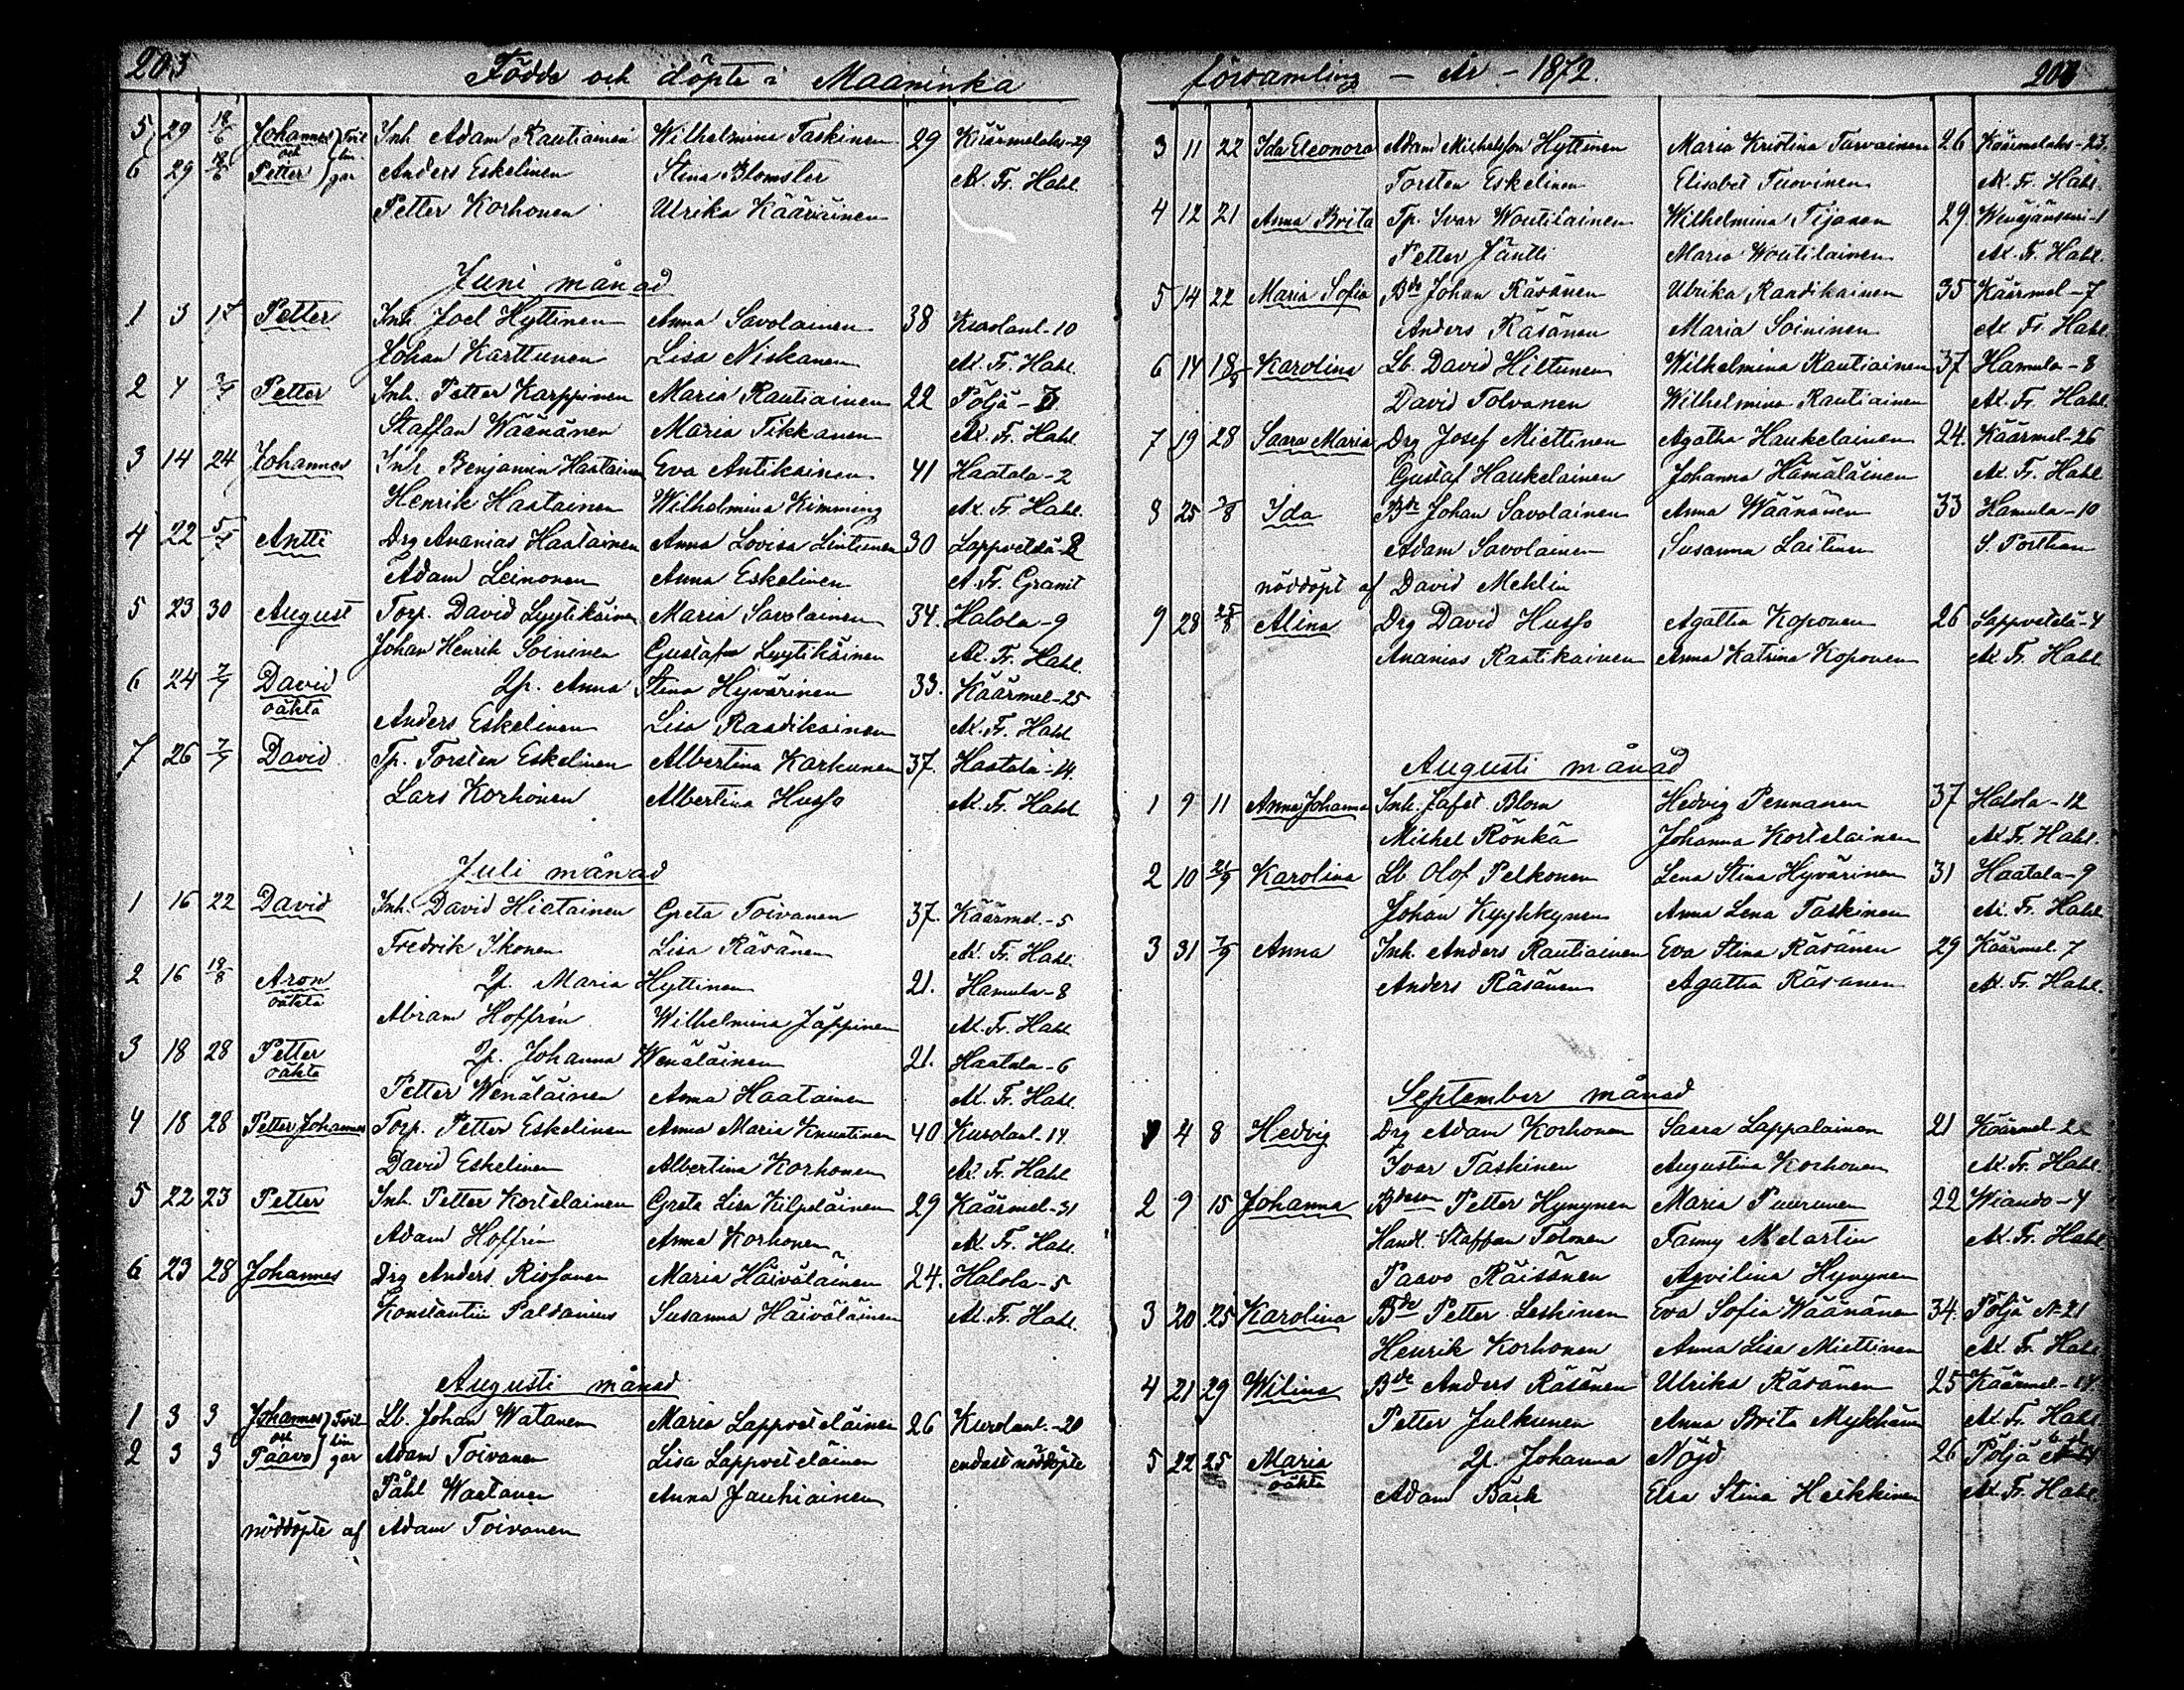 203 Födde och döpte i Maaninka
5 29 18/6 Johannes och Tvil Inh. Adam Rautiainen Wilhelmina Taskinen 29 Käärmelaks-29
6 29 18/6 Petter lingar Anders Eskelinen Stina Blomster Ax. Fr. Hahl.
Petter Korhonen Ulrika Kääriäinen
Juni månad
1 3 17 Petter Inh. Joel Hyttinen Anna Savolainen 38 Kurolanl-10
Johan Karttunen Lisa Niskanen Ax. Fr. Hahl.
2 4 Petter Inh. Petter Karppinen Maria Rautiainen 22 Pöljä-
Staffan Wäänänen Maria Tikkanen Ax. Fr. Hahl
3 14 24 Johannes Inh. Benjamin Haatainen Eva Antikainen 41 Haatala-2
Henrik Haatainen Wilhelmina Kimming Ax. Fr. Hahl.
4 22 5/7 Antti Drg Ananias Haatainen Anna Lovisa Lintunen 30 Lappvetelä-2
Adam Leinonen Anna Eskelinen A. Fr. Granit
5 23 30 August Torp. David Lyytikäinen Maria Savolainen 34. Halola-9
Johan Henrik Soininen Gustafva Lyytikäinen Ax. Fr. Hahl.
6 24 7/7 David Qp. Anna Stina Hyvärinen 33. Käärmel-25
oäkta
Anders Eskelinen Lisa Raadikainen Ax. Fr. Hahl
7 26 7/7 David Tp. Torsten Eskelinen Albertina Karhunen 37. Haatala-14.
Lars Korhonen Albertina Husso Ax. Fr. Hahl
Juli månad
1 16 22 David Inh. David Hietainen Greta Toivanen 37. Käärmel.-5
Fredrik Ikonen Lisa Räsänen Ax. Fr. Hahl.
2 16 19/8 Aron Qp. Maria Hyttinen 21. Hamula-8
oäkta
Abram Hoffrén Wilhelmina Jäppinen Ax. Fr. Hahl
3 18 28 Petter Qp. Johanna Wenäläinen 21. Haatala-6
oäkta
Petter Wenäläinen Anna Haatainen Ax. Fr. Hahl.
4 18 28 Petter Johannes Torp. Petter Eskelinen Anna Maria Knuutinen 40 Kurolanl-14.
David Eskelinen Albertina Korhonen Ax. Fr. Hahl
5 22 23 Petter Inh. Petter Kortelainen Greta Lisa Kilpeläinen 29 Käärmel-31
Adam Hoffrén Anna Korhonen Ax. Fr. Hahl.
6 23 28 Johannes Drg Anders Rissanen Maria Häiväläinen 24. Halola-5
Konstantin Paldanius Susanna Häiväläinen Ax. Fr. Hahl.
Augusti månad
1 3 3 Johannes och Tvil Lb. Johan Watanen Maria Lappveteläinen 26 Kurolanl.-20
2 3 3 Paavo lingar Adam Toivanen Lisa Lappveteläinen endast nöddöpte
Påhl Waatanen Anna Jauhiainen
nöddöpte af Adam Toivanen
församling - År - 1872.
3 11 22 Ida Eleonora Adam Michelsson Hyttinen Maria Kristina Tarvainen 26 Käärmelaks-23.
Torsten Eskelinen Elisabet Tuovinen Ax. Fr. Hahl.
4 12 21 Anna Brita Tp. Ivar Woutilainen Wilhelmina Tijanen 29. Wenejänsuu-1
Petter Jäntti Maria Woutilainen Ax. Fr. Hahl.
5 14 22 Maria Sofia Bde Johan Räsänen Ulrika Raadikainen 35 Käärmel-7
Anders Räsänen Maria Soininen Ax. Fr. Hahl.
6 14 18/8 Karolina Lb. David Hiltunen Wilhelmina Rautiainen 37 Hamula-8
David Tolvanen Wilhelmina Rautiainen Ax. Fr. Hahl.
7 19 28 Saara Maria Drg Josef Miettinen Agatha Haukelainen 24. Käärmel-26
Gustaf Haukelainen Johanna Hämäläinen Ax. Fr. Hahl
8 25 7/8 Ida Bde Johan Savolainen Anna Wäänänen 33 Hamula-10
Adam Savolainen Susanna Laitinen S. Porthan
nöddöpt af David Mehlin
9 28 25/8 Alina Drg David Husso Agatha Koponen 26 Lappvetelä-4
Ananias Raatikainen Anna Katrina Koponen Ax. Fr. Hahl
Augusti månad
1 9 11 Anna Johanna Inh. Jafet Blom Hedvig Pennanen 37 Halola-12
Michel Rönkä Johanna Kortelainen Ax. Fr. Hahl.
2 10 21/9 Karolina Lb Olof Pelkonen Lena Stina Hyvärinen 31 Haatala-9
Johan Kyyhkynen Anna Lena Taskinen Ax. Fr. Hahl
3 31 7/9 Anna Inh. Anders Rautiainen Eva Stina Räsänen 29 Käärmel. 7
Anders Räsänen Agatha Räsänen Ax. Fr. Hahl.
September månad
1 4 8 Hedvig Drg Adam Korhonen Saara Lappalainen 21 Käärmel-22
Ivar Taskinen Augustina Korhonen Ax. Fr. Hahl.
2 9 15 Johanna Bdeson Petter Hynynen Maria Puurunen 22 Wiando-4
Handl. Staffan Tolonen Fanny Melartin Ax. Fr. Hahl.
Paavo Räisänen Aqvilina Hynynen
3 20 25 Karolina Bde Petter Leskinen Eva Sofia Wäänänen 34. Pöljä N-21
Henrik Korhonen Anna Lisa Miettinen Ax. Fr. Hahl
4 21 29 Wilina Bde Anders Räsänen Ulrika Räsänen 25 Käärmel-14.
Petter Julkunen Anna Brita Mykkänen Ax. Fr. Hahl
5 22 25 Maria Qp. Johanna Nöjd 26 Pöljä
oäkta
Adam Bäck Elsa Stina Heikkinen Ax. Fr. Hahl